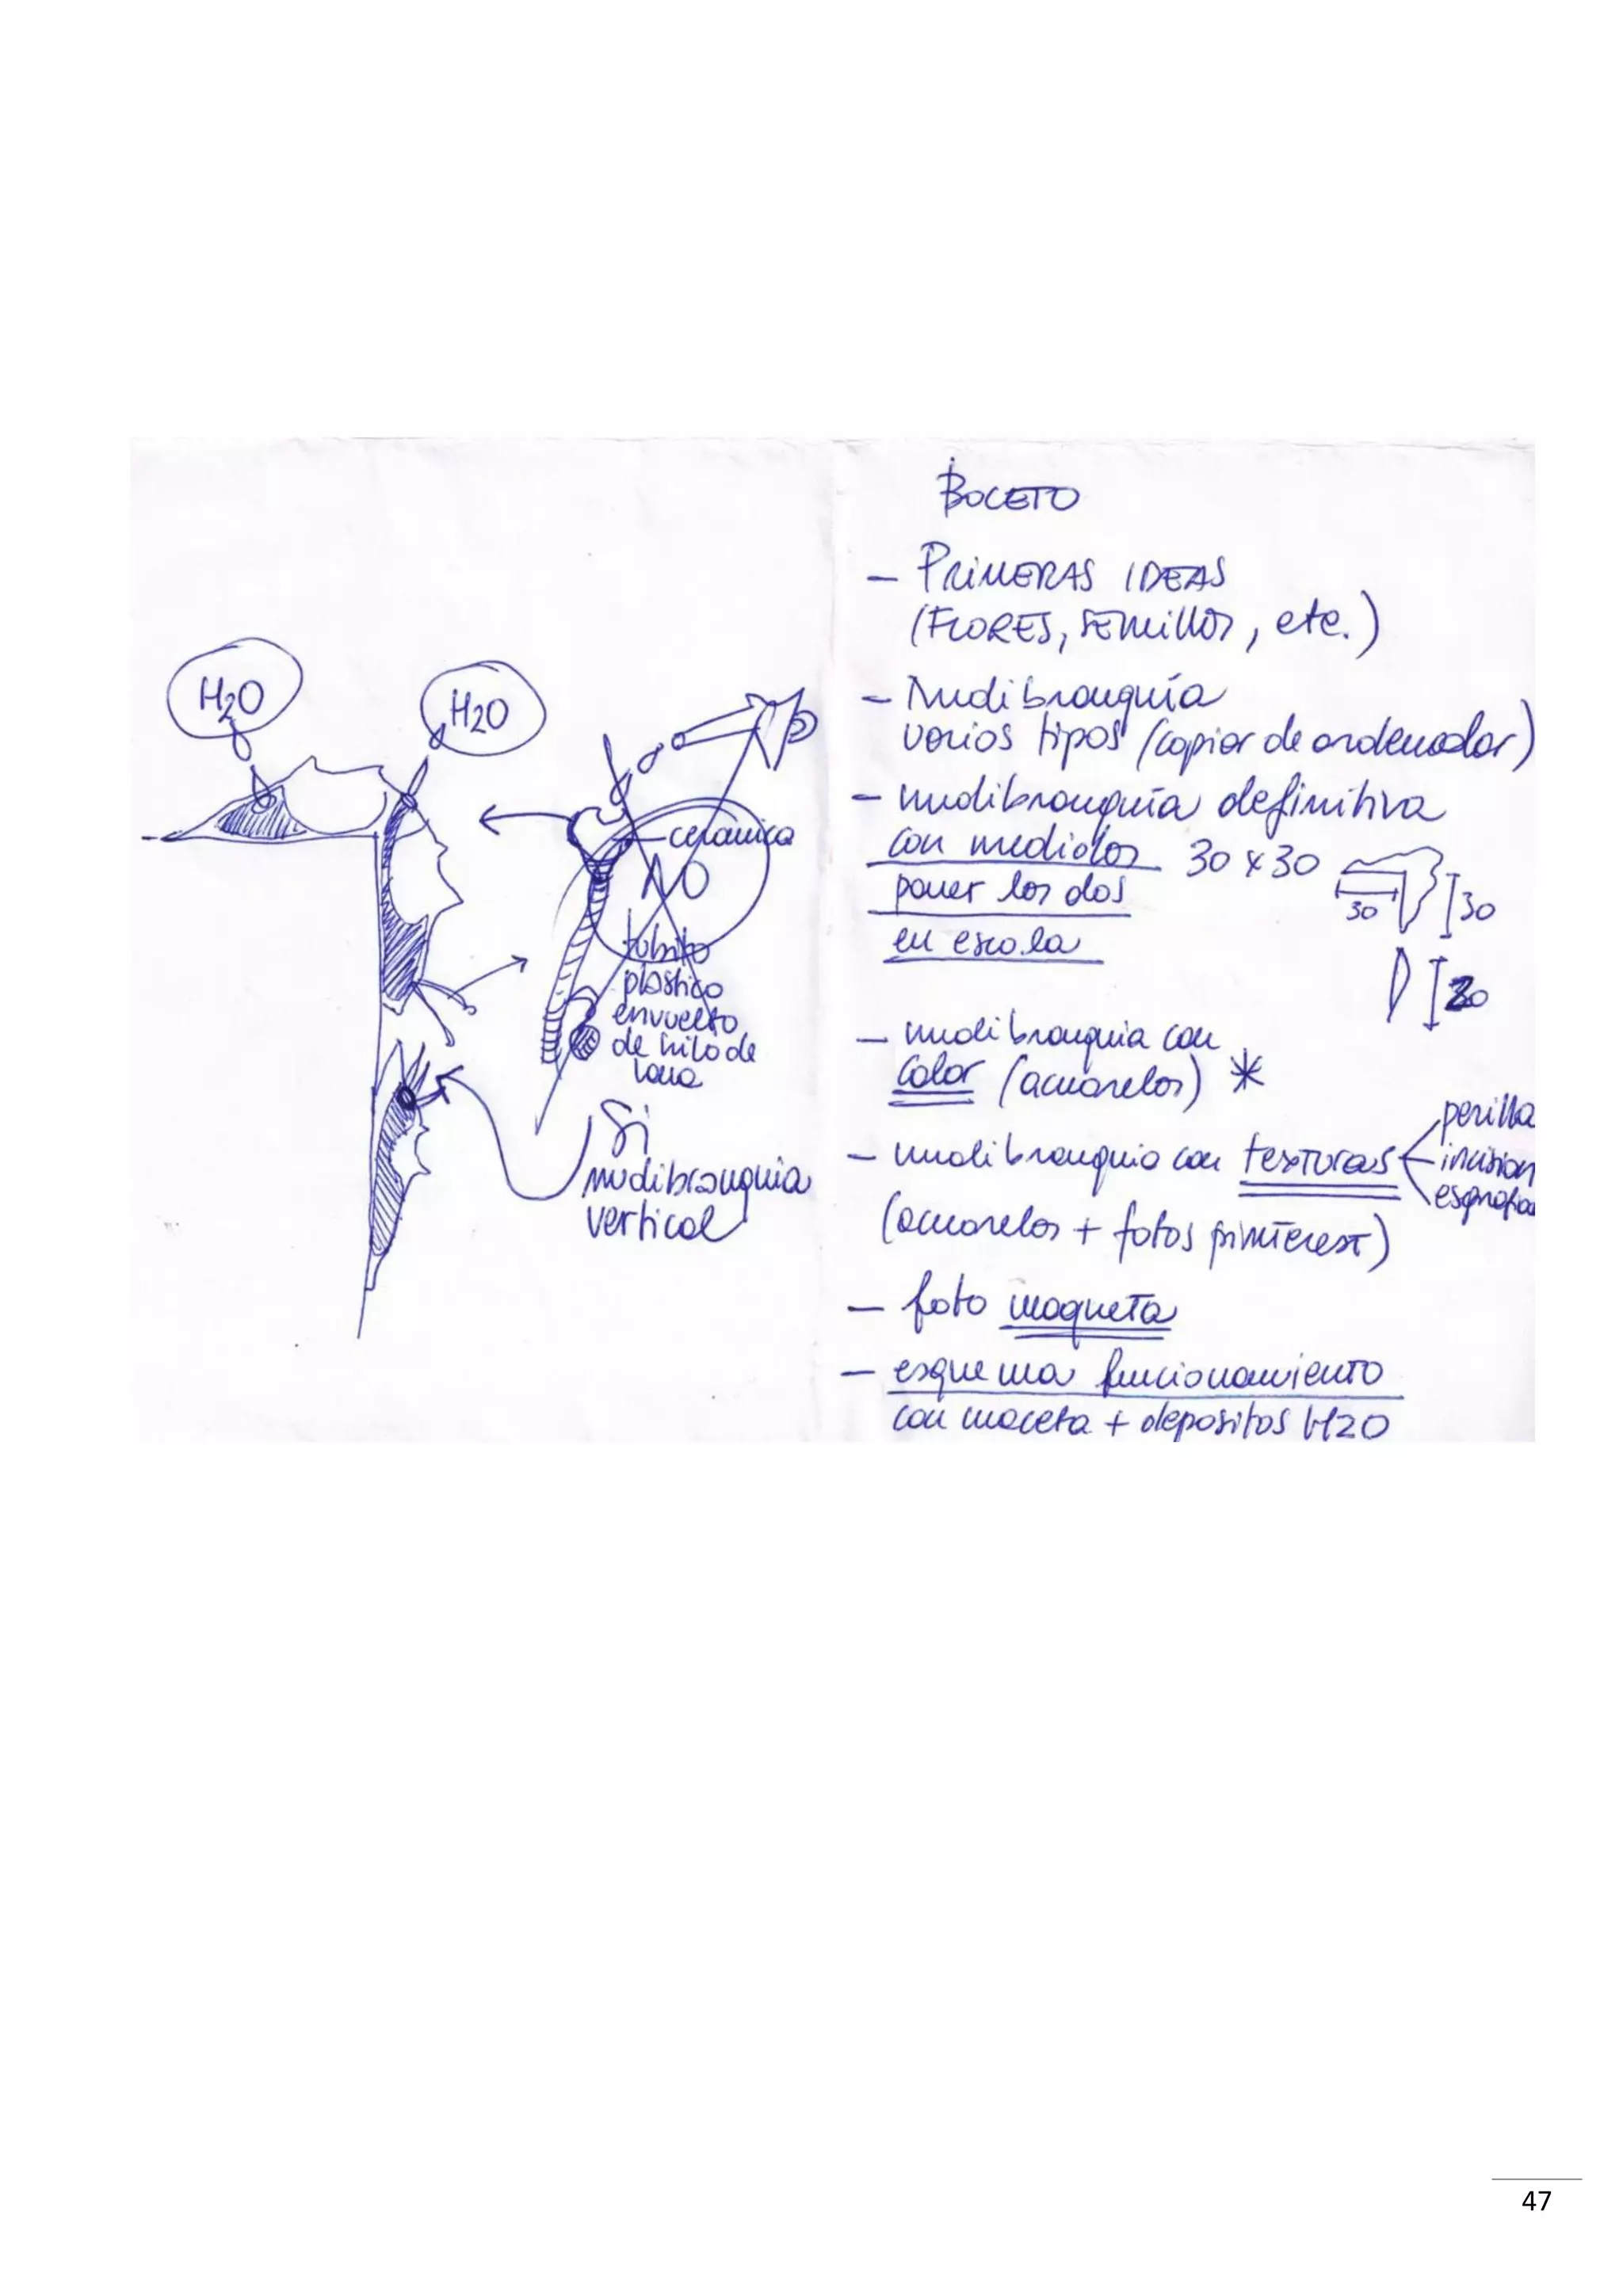 H2O
H2O
cerámica
NO
tubito
plástico
envuelto
de hilo de
lana
Si
nudibranquia
vertical
BOCETO
- PRIMERAS IDEAS
(FLORES, SEMILLAS, etc.)
- Nudibranquia
varios tipos (copiar de ordenador)
- nudibranquia definitiva
con medidas 30 x 30
30
30
poner los dos
en escala
20
- nudibranquia con
color (acuarelas) *
- nudibranquia con texturas
perilla
incision
(acuarelas + fotos pinterest)
- foto maqueta
- esquema funcionamiento
con maceta + depositos H2O
47